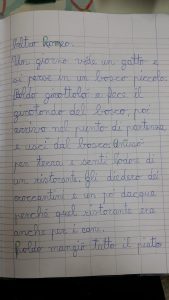 Poltro Romeo.
Un giorno vide un gatto e
si perse in un bosco piccolo.
Poldo girottolò e fece il
girotondo del bosco, poi
arrivò nel punto di partenza
e uscì dal bosco. Entrò
per terra e sentì l'odore di
un ristorante. Gli diedero dei
croccantini e un po' d'acqua
perché quel ristorante era
anche per i cani.
Poldo mangiò tutto il piatto